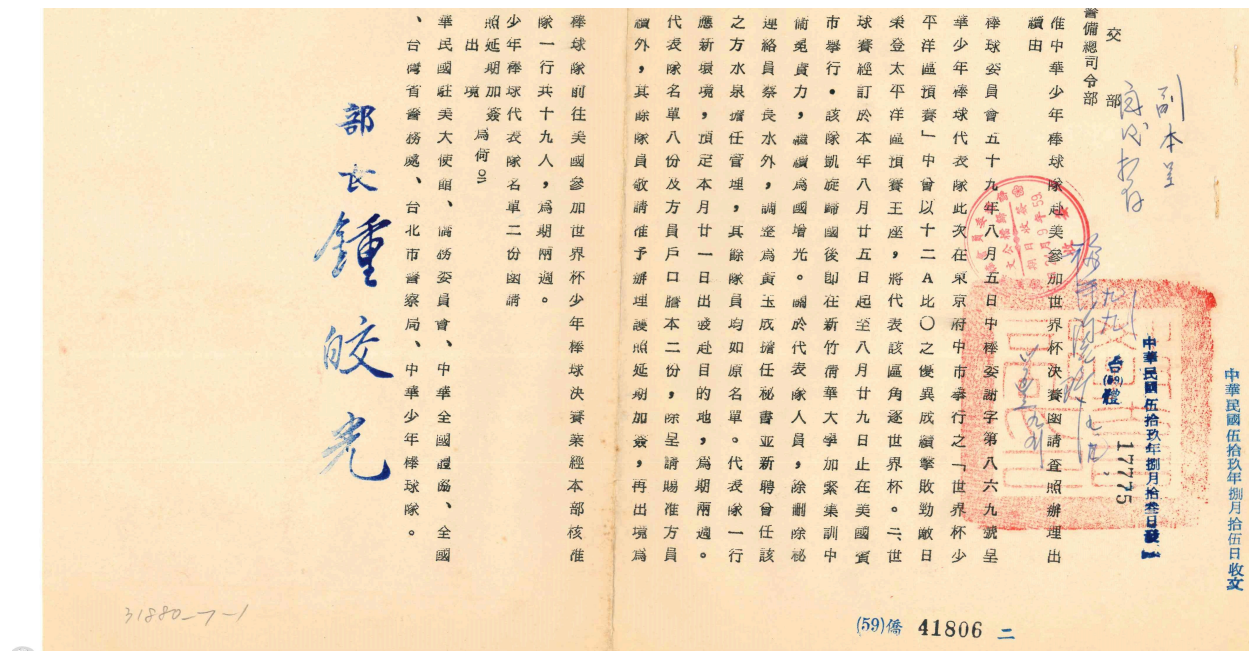 中華民國伍拾玖年捌月拾伍日收文
中華民國伍拾玖年捌月拾叁日發
台(59)體
17775
副本呈
交 部
警備總司令部
准中華少年棒球隊赴美參加世界杯決賽函請查照辦理出
續由
棒球委員會五十九年八月五日中棒委謝字第八六九號呈
華少年棒球代表隊此次在東京府中市舉行之「世界杯少
平洋區預賽」中曾以十二A比〇之優異成績擊敗勁敵日
秉登太平洋區預賽王座,將代表該區角逐世界杯。二、世
球賽經訂於本年八月廿五日起至八月廿九日止在美國賓
市舉行。該隊凱旋歸國後即在新竹清華大學加緊集訓中
衛冕責力,繼續為國增光。關於代表隊人員,除刪除秘
連絡員蔡長水外,調整為黃玉成擔任秘書並新聘曾任該
之方水泉擔任管理,其餘隊員均如原名單。代表隊一行
應新環境,預定本月廿一日出發赴目的地,為期兩週。
代表隊名單八份及方員戶口謄本二份,除呈請賜准方員
續外,其餘隊員敬請准予辦理護照延期加簽,再出境為
棒球隊前往美國參加世界杯少年棒球決賽業經本部核准
隊一行共十九人,為期兩週。
少年棒球代表隊名單二份函請
照延期加簽為荷。
出境
華民國駐美大使館、僑務委員會、中華全國體協、全國
、台灣省警務處、台北市警察局、中華少年棒球隊。
部長 鍾皎光
(59)僑 41806 二
31880-7-1